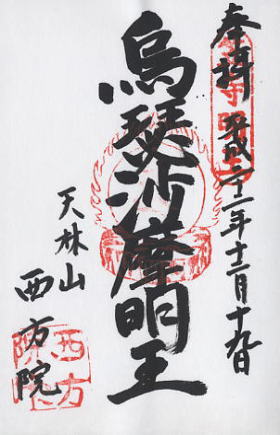 奉拝 平成二十二年十二月十九日
烏瑟沙摩明王
天林山
西方院
西方
院